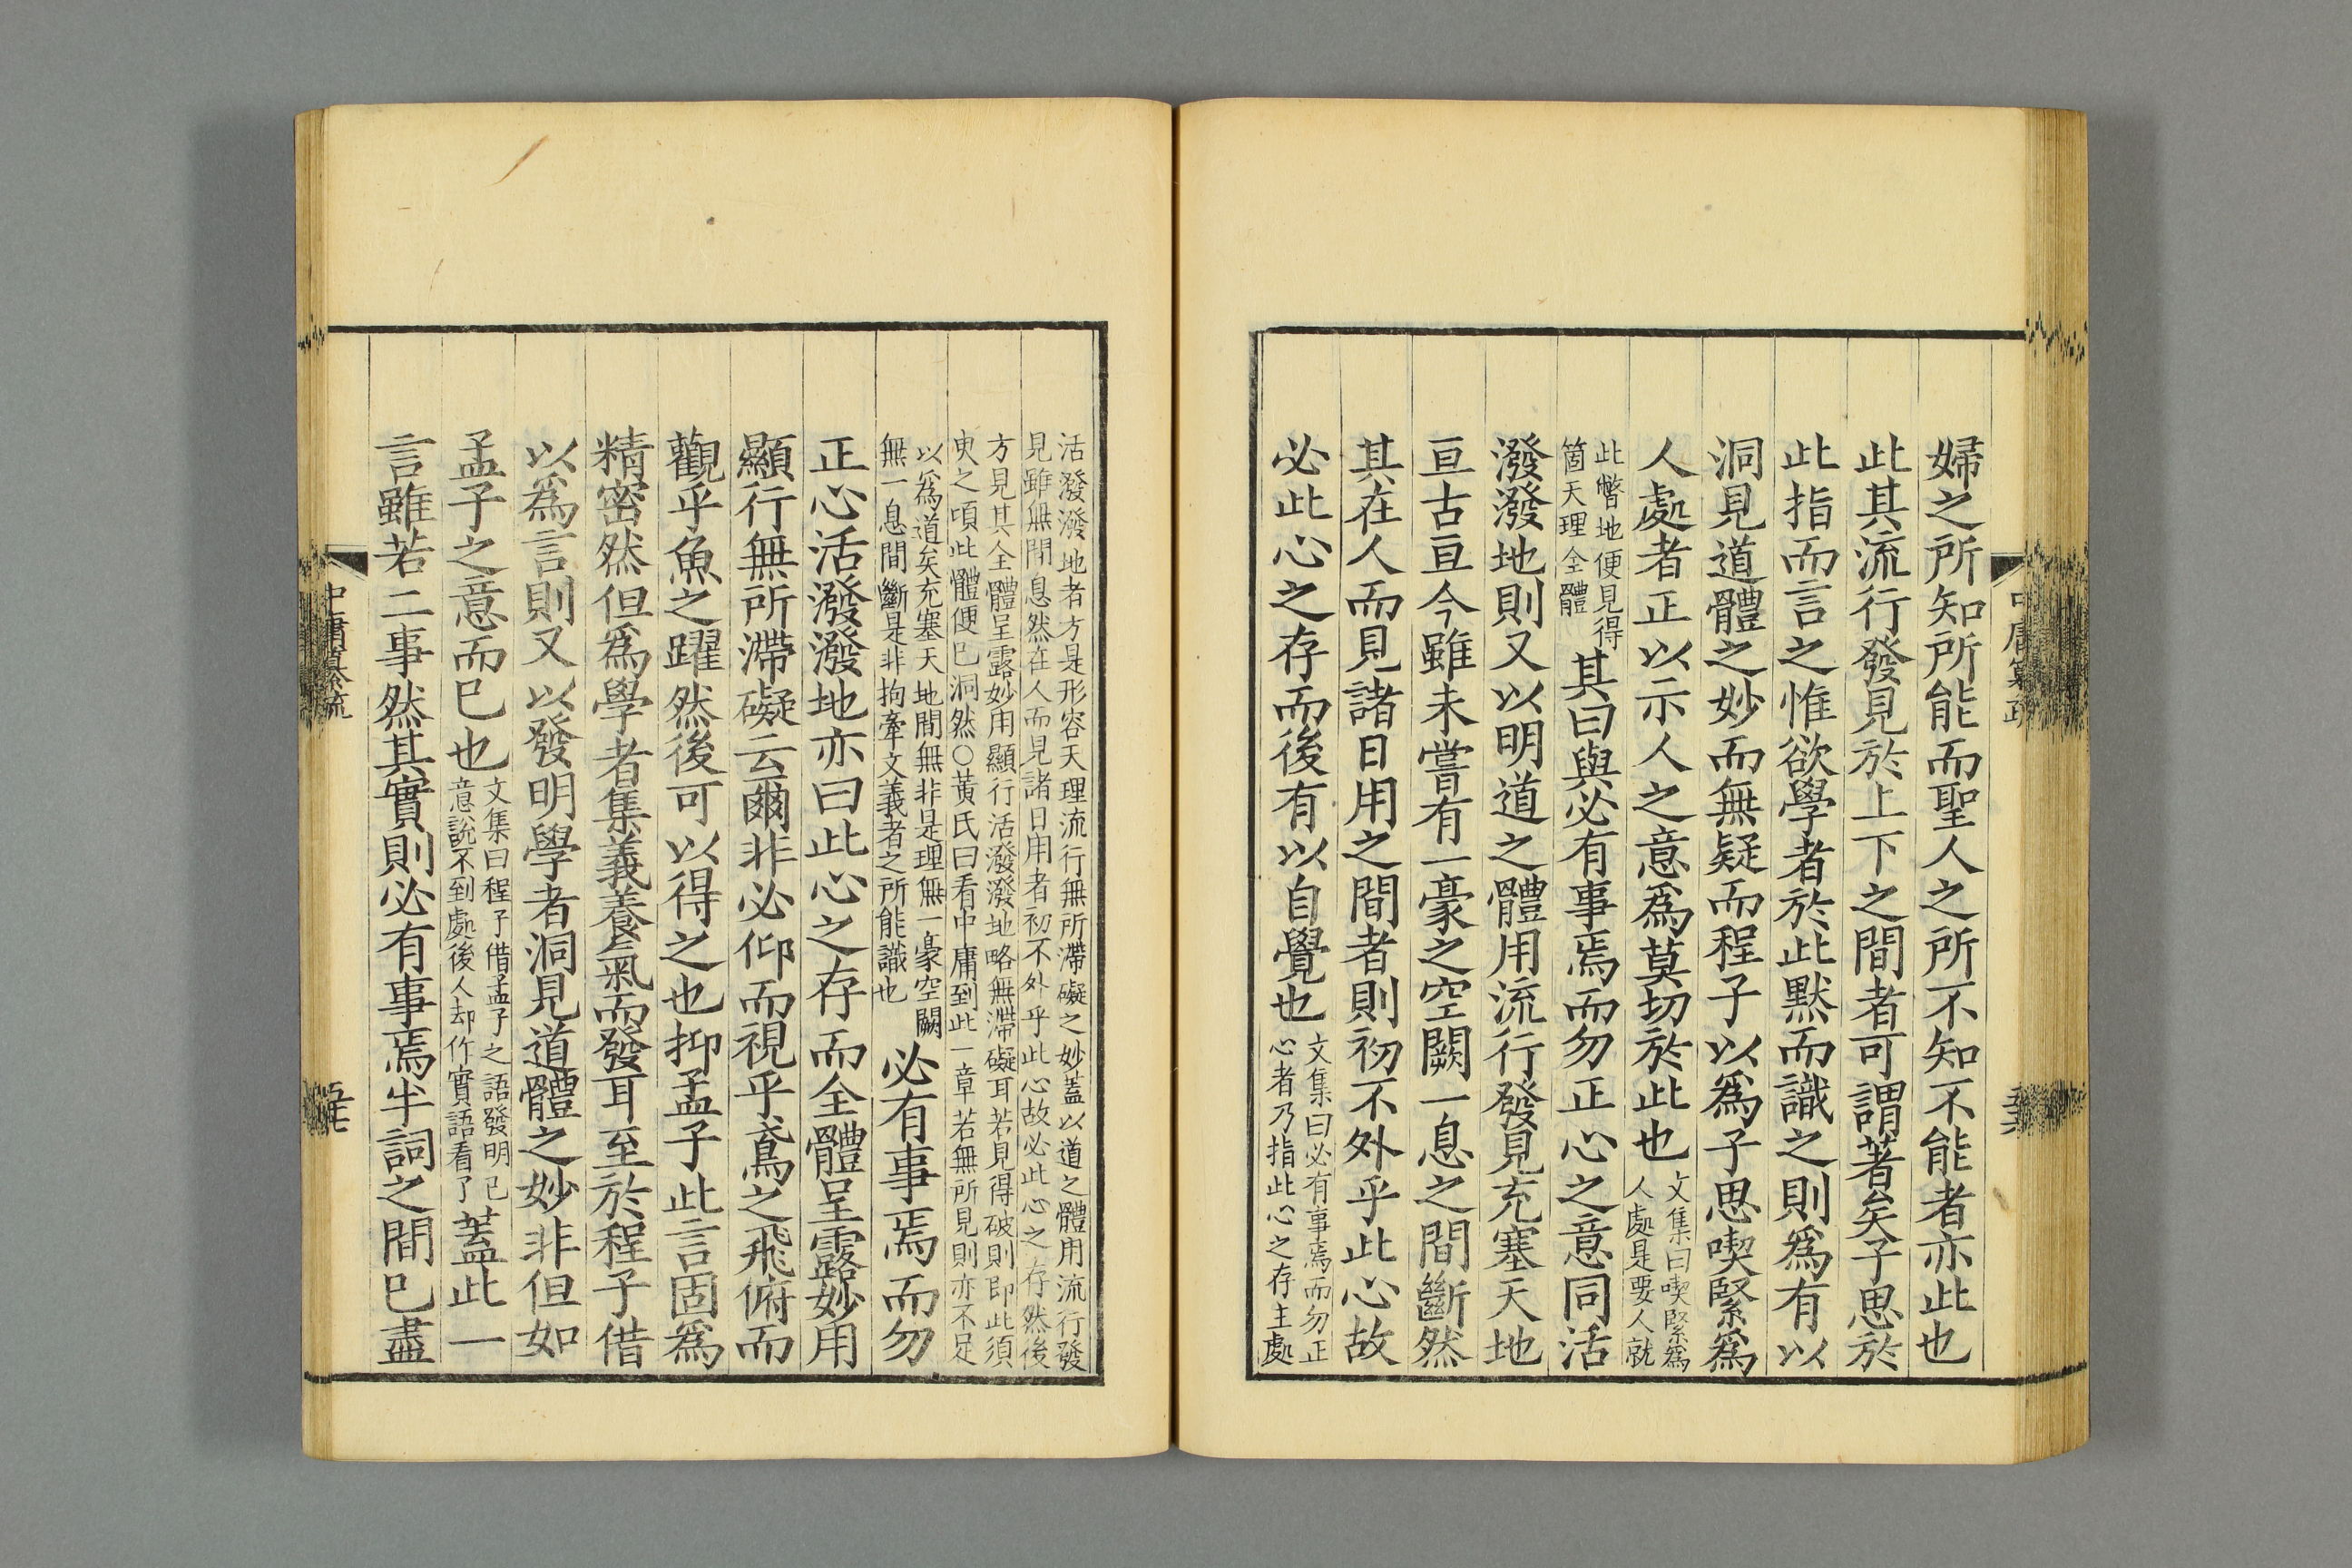 婦之所知所能而聖人之所不知不能者亦此也
此其流行發見於上下之間者可謂著矣子思於
此指而言之惟欲學者於此默而識之則爲有以
洞見道體之妙而無疑而程子以爲子思喫緊爲
人處者正以示人之意爲莫切於此也
文集曰喫緊爲
人處是要人就
此瞥地便見得
箇天理全體
其曰與必有事焉而勿正心之意同活
潑潑地則又以明道之體用流行發見充塞天地
亘古亘今雖未嘗有一豪之空闕一息之間斷然
其在人而見諸日用之間者則初不外乎此心故
必此心之存而後有以自覺也
文集曰必有事焉而勿正
心者乃指此心之存主處
活潑潑地者方是形容天理流行無所滯礙之妙蓋以道之體用流行發
見雖無間息然在人而見諸日用者初不外乎此心故必此心之存然後
方見其全體呈露妙用顯行活潑潑地略無滯礙耳若見得破則即此須
臾之頃此體便已洞然○黃氏曰看中庸到此一章若無所見則亦不足
以爲道矣充塞天地間無非是理無一豪空闕
無一息間斷是非拘牽文義者之所能識也
必有事焉而勿
正心活潑潑地亦曰此心之存而全體呈露妙用
顯行無所滯礙云爾非必仰而視乎鳶之飛俯而
觀乎魚之躍然後可以得之也抑孟子此言固爲
精密然但爲學者集義養氣而發耳至於程子借
以爲言則又以發明學者洞見道體之妙非但如
孟子之意而已也
文集曰程子借孟子之語發明已
意說不到處後人却作實語看了
蓋此一
言雖若二事然其實則必有事焉半詞之間已盡
中庸纂疏